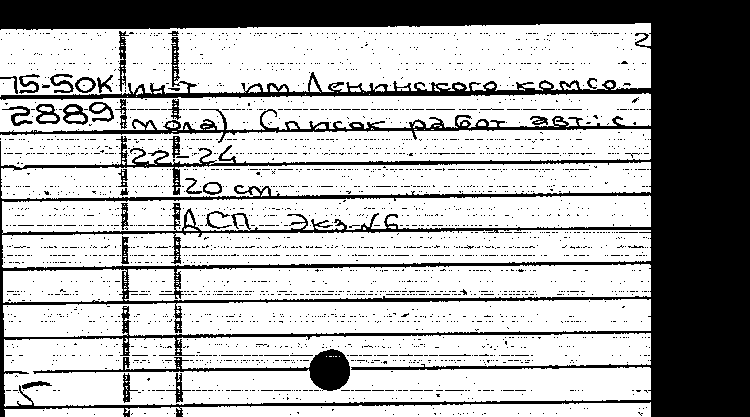 2
75-50К ин-т им Ленинского комсо-
2889 мола). Список работ авт.: с.
22-24
20 см.
ДСП. Экз. №6
5